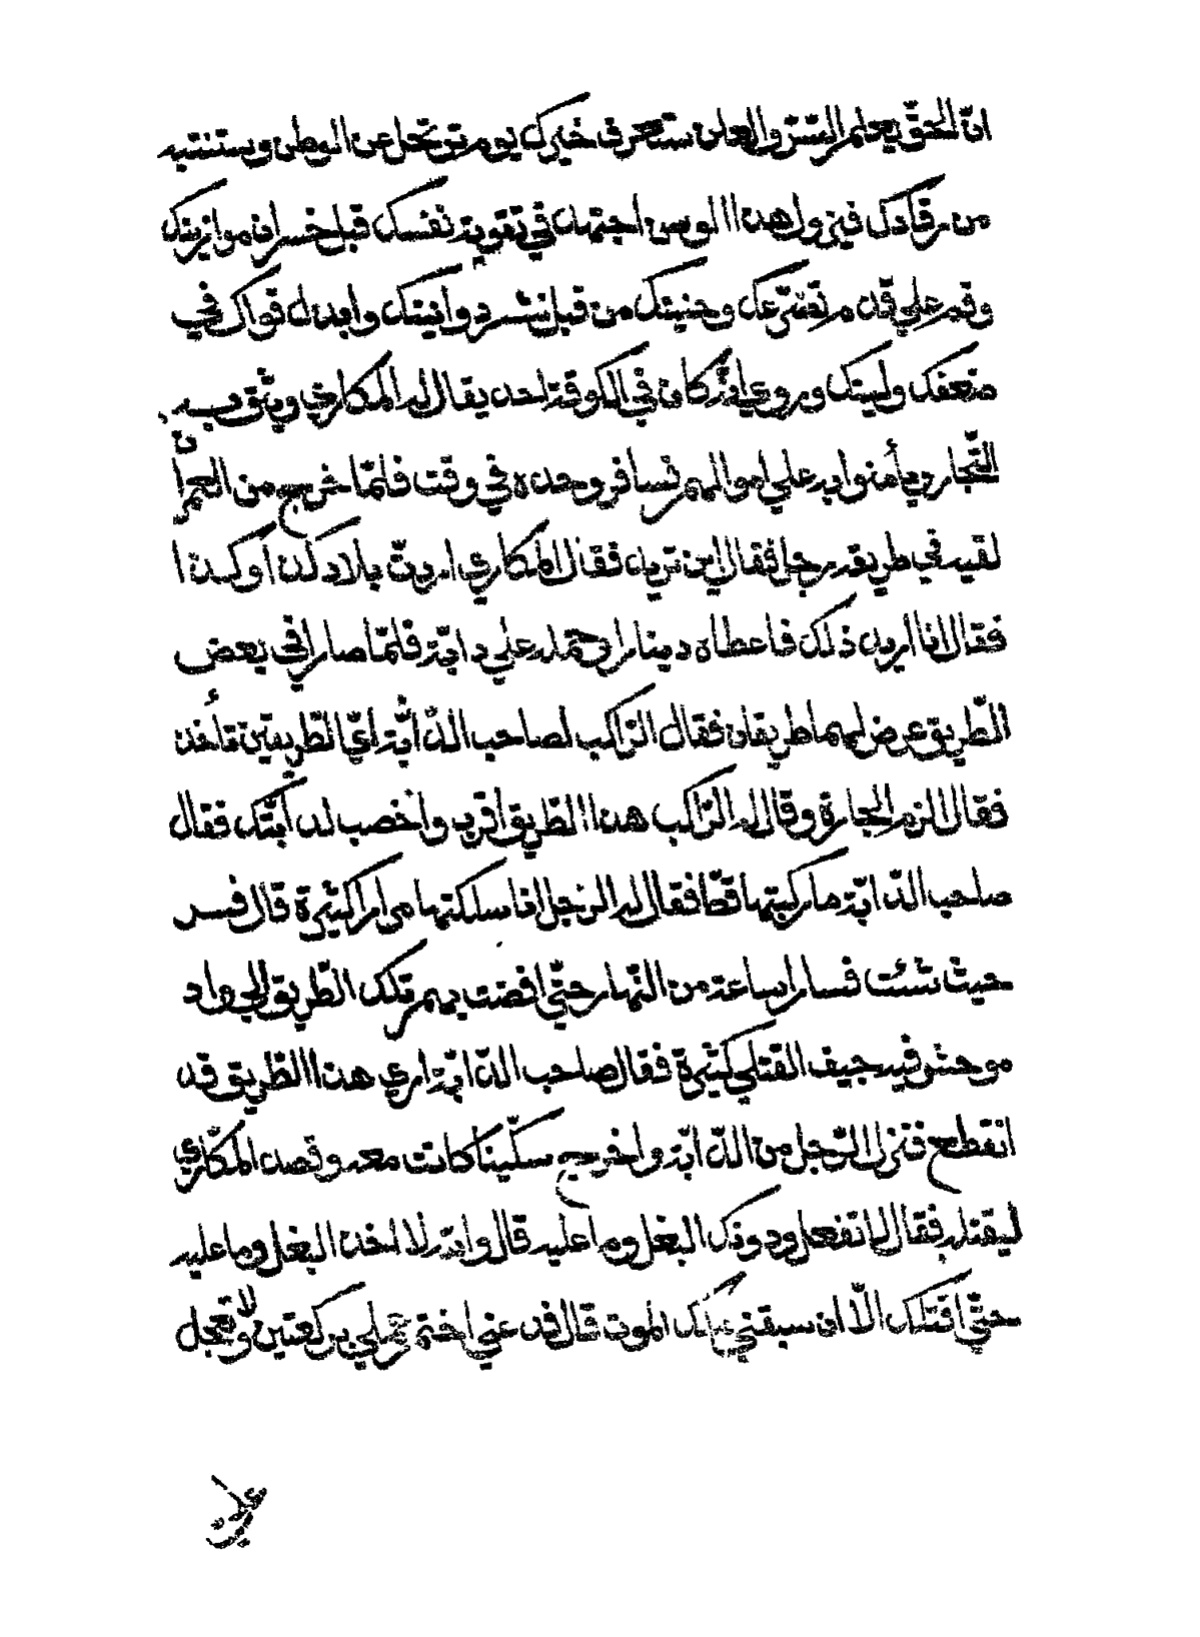 انّ الحقّ يعلم السّرّ والعلن ستعرف خبرك يوم ترتحل عن الوطن وستنتبه
من رقادك فيزول هذا الوسن اجتهد في تقوية نفسك قبل خسران موازينك
وقم على قدم تضرّعك وخيبتك من قبل نشر دوانيتك وابذل قواك في
ضعفك ولينك وروي انّه كان في الكوفة احد يقال له المكاري ويثق به
التّجار ويأمنوا به علي اموالهم فسافر وحده في وقت فلمّا خرج من العمران
لقيه في طريقه رجل فقال اين تريد فقال المكاري اريد بلاد كذا وكذا
فقال انا اريد ذلك فاعطاه دينارا وحمله علي دابّة فلمّا صارا في بعض
الطّريق عرض لهما طريقان فقال الرّاكب لصاحب الدّابّة ايّ الطّريقين تأخذ
فقال الزم الجارة وقال له الرّاكب هذا الطّريق اقرب واخصب لدابّتك فقال
صاحب الدّابّة ما ركبتها قطّ فقال له الرّجل انا سلكتها مرارا كثيرة قال فسر
حيث شئت فسارا ساعة من النّهار حتّي افضت بهم تلك الطّريق الي واد
موحش فيه جيف القتلي كثيرة فقال صاحب الدّابّة اري هذا الطّريق قد
انقطع فنزل الرّجل من الدّابّة واخرج سكّينا كانت معه وقصد المكّاري
ليقتله فقال له لا تفعل ودونك البغل وما عليه قال والله لا اخذ البغل وما عليه
حتّي اقتلك الّا ان سبقني ملك الموت قال فدعني اختم عملي بركعتين ولا تعجل